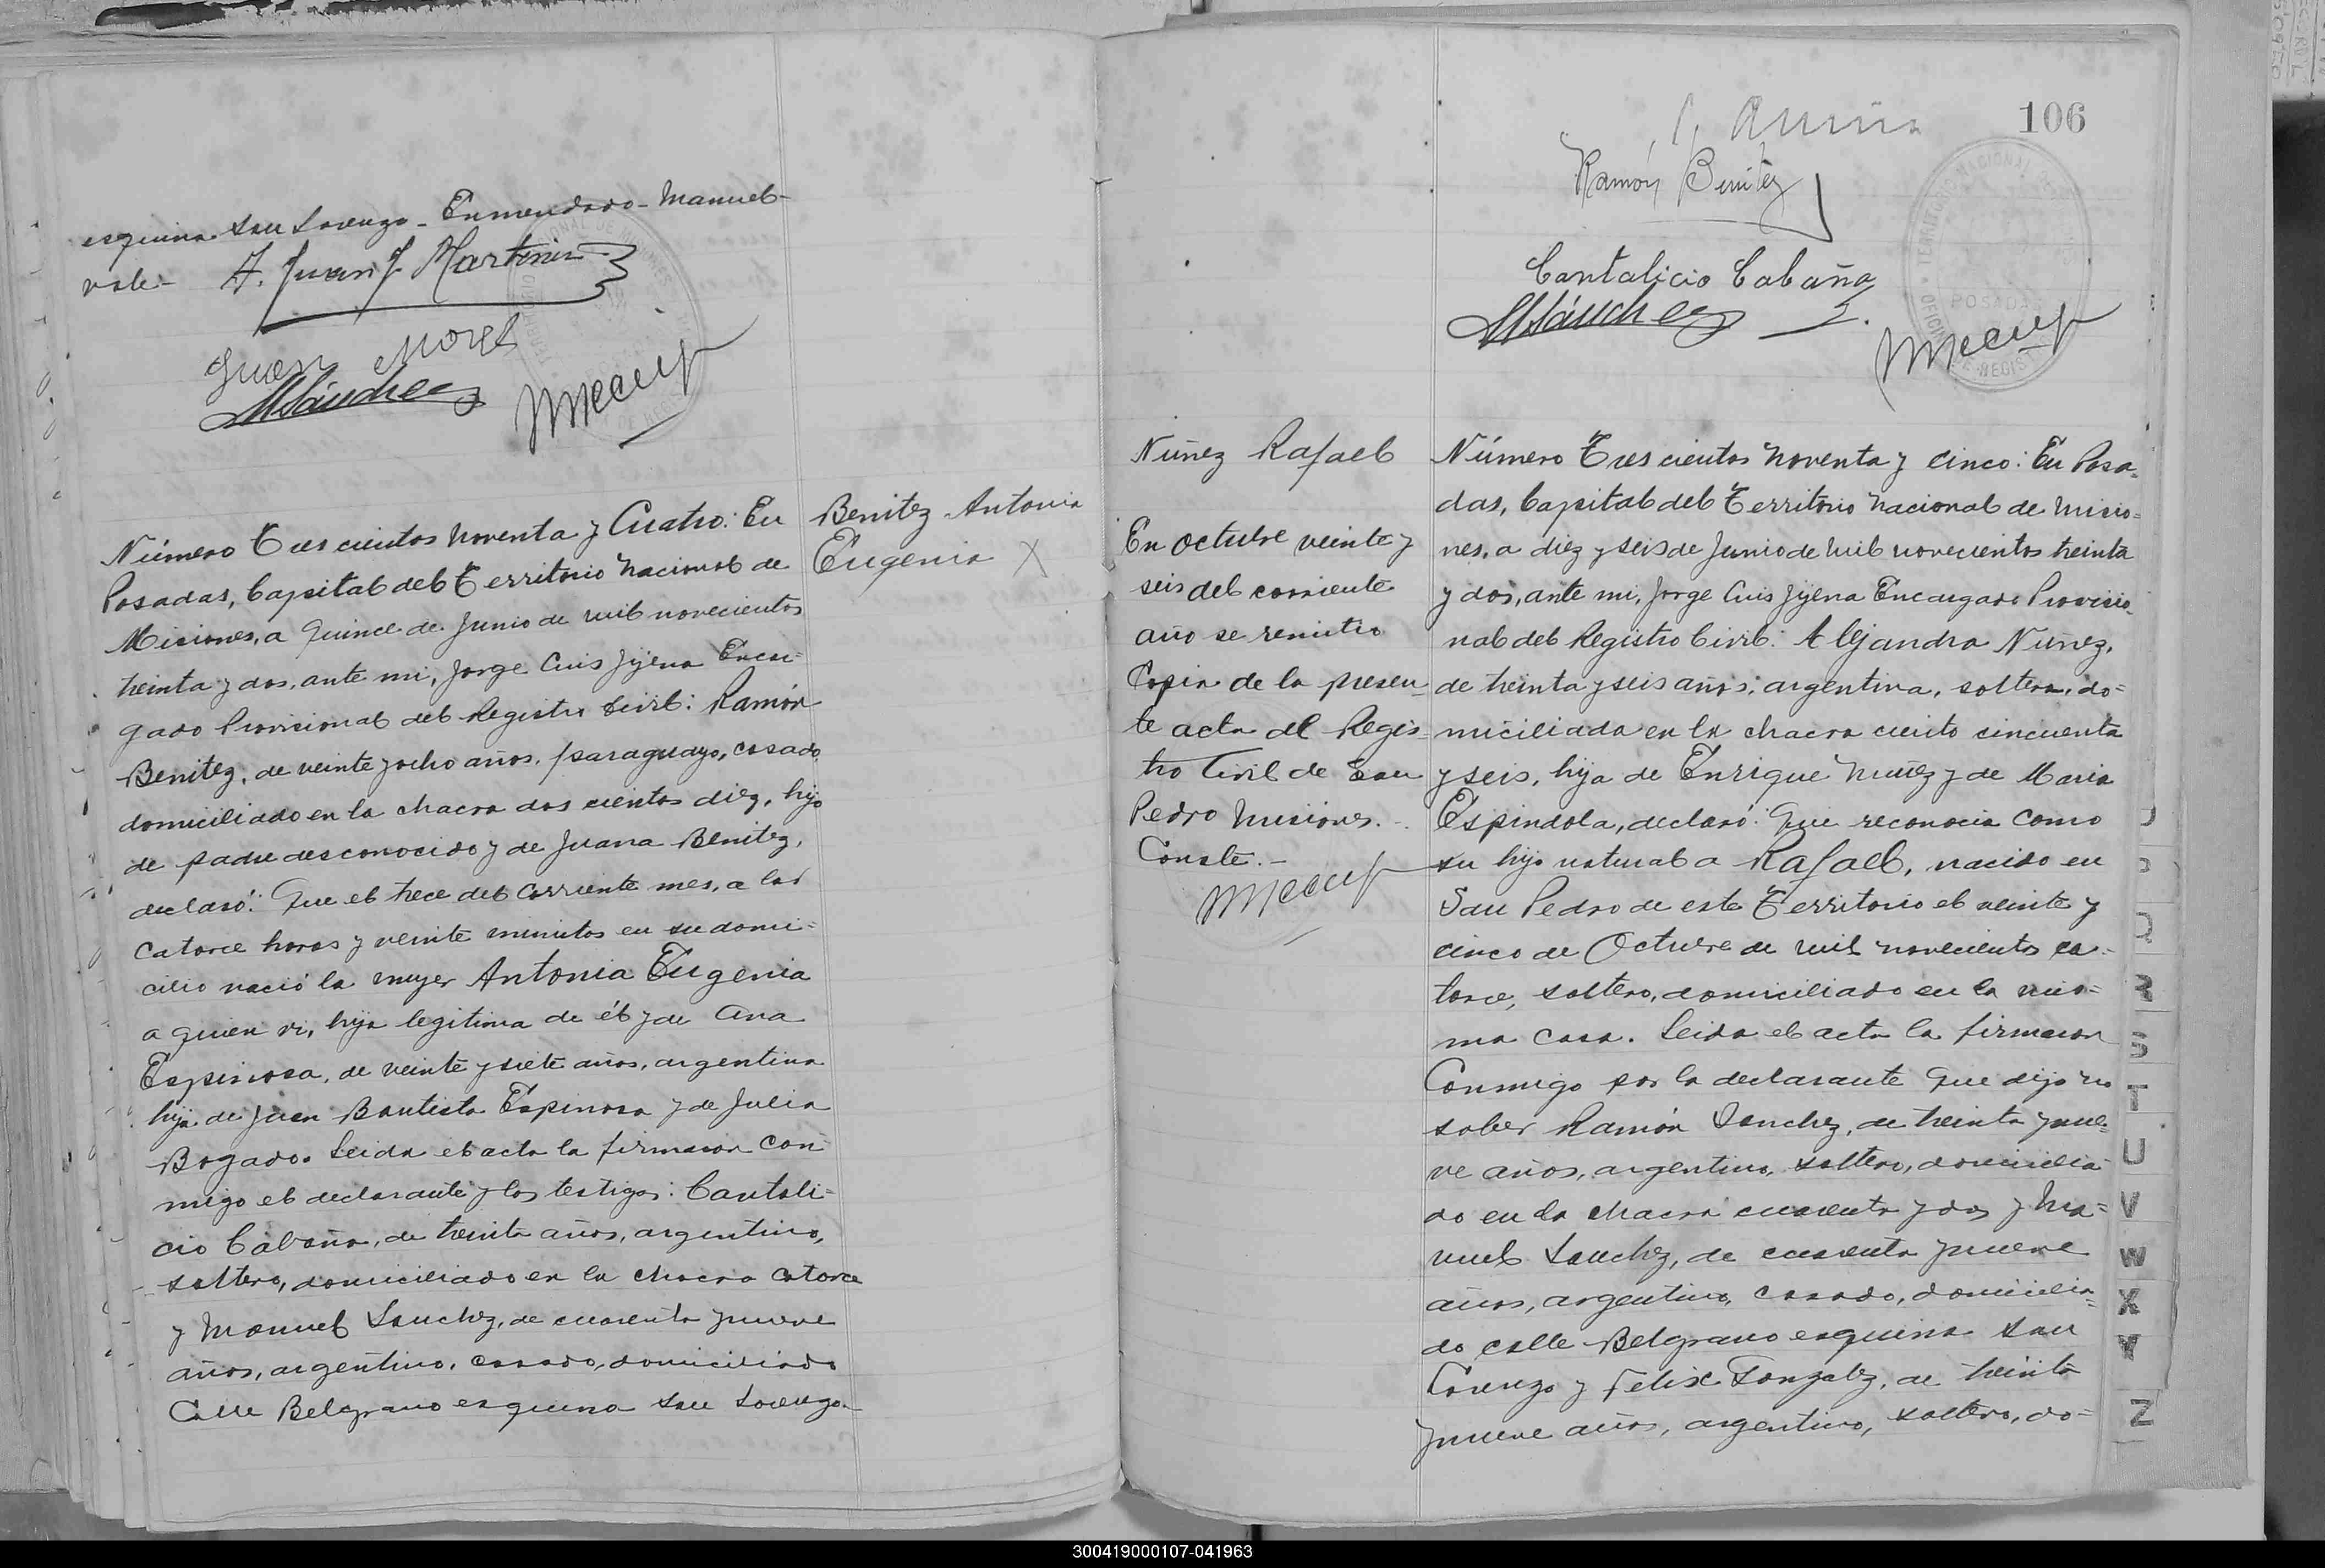 esquina San Lorenzo - Enmendado - Manuel -
vale -
A. Juan J Martinez
Juan
MSánchez
Número Trescientos noventa y Cuatro: En
Posadas, Capital del Territorio Nacional de
Misiones, a quince de Junio de mil novecientos
treinta y dos, ante mi, Jorge Luis Jijena Encar=
gado Provisional del Registro Civil: Ramón
Benitez, de veinte y ocho años, paraguayo, casado
domiciliado en la chacra dos cientos diez, hijo
de padre desconocido y de Juana Benitez,
declaró: Que el trece del corriente mes, a las
catorce horas y veinte minutos en su domi=
cilio nació la mujer Antonia Eugenia
a quien vi, hija legitima de él y de Ana
Espinosa, de veinte y siete años, argentina
hija de Juan Bautista Espinosa y de Julia
Bogado. Leida el acta la firmaron con
migo el declarante y los testigos: Cantali=
cio Cabaña, de treinta años, argentino,
soltero, domiciliado en la chacra catorce
y Manuel Sanchez, de cuarenta y nueve
años, argentino, casado, domiciliado
Calle Belgrano esquina San Lorenzo.
Benitez Antonia
Eugenia X
106
Ramón Benitez
Cantalicio Cabaña
MSánchez
POSADAS
Nuñez Rafael
En octubre veinte y
seis del corriente
año se remitio
Copia de la presen
te acta al Regis=
tro Civil de San
Pedro Misiones.
Conste. -
Número Trescientos noventa y cinco: En Posa=
das, Capital del Territorio Nacional de Misio=
nes, a diez y seis de Junio de mil novecientos treinta
y dos, ante mi, Jorge Luis Jijena Encargado Provisio=
nal del Registro Civil: Alejandra Nuñez,
de treinta y seis años, argentina, soltera, do=
miciliada en la chacra ciento cincuenta
y seis, hija de Enrique Nuñez y de Maria
Espindola, declaró: Que reconocia como
su hijo natural a Rafael, nacido en
San Pedro de este Territorio el veinte y
cinco de Octubre de mil novecientos ca=
torce, soltero, domiciliado en la mis=
ma casa. Leida el acta la firmaron
Conmigo por la declarante que dijo no
saber Ramón Sanchez, de treinta y nue=
ve años, argentino, soltero, domicilia
do en la chacra cuarenta y dos y Ma=
nuel Sanchez, de cuarenta y nueve
años, argentino, casado, domicilia=
do calle Belgrano esquina San
Lorenzo y Felix Gonzalez, de treinta
y nueve años, argentino, soltero, do=
Q
R
S
T
U
V
W
X
Y
Z
300419000107-041963